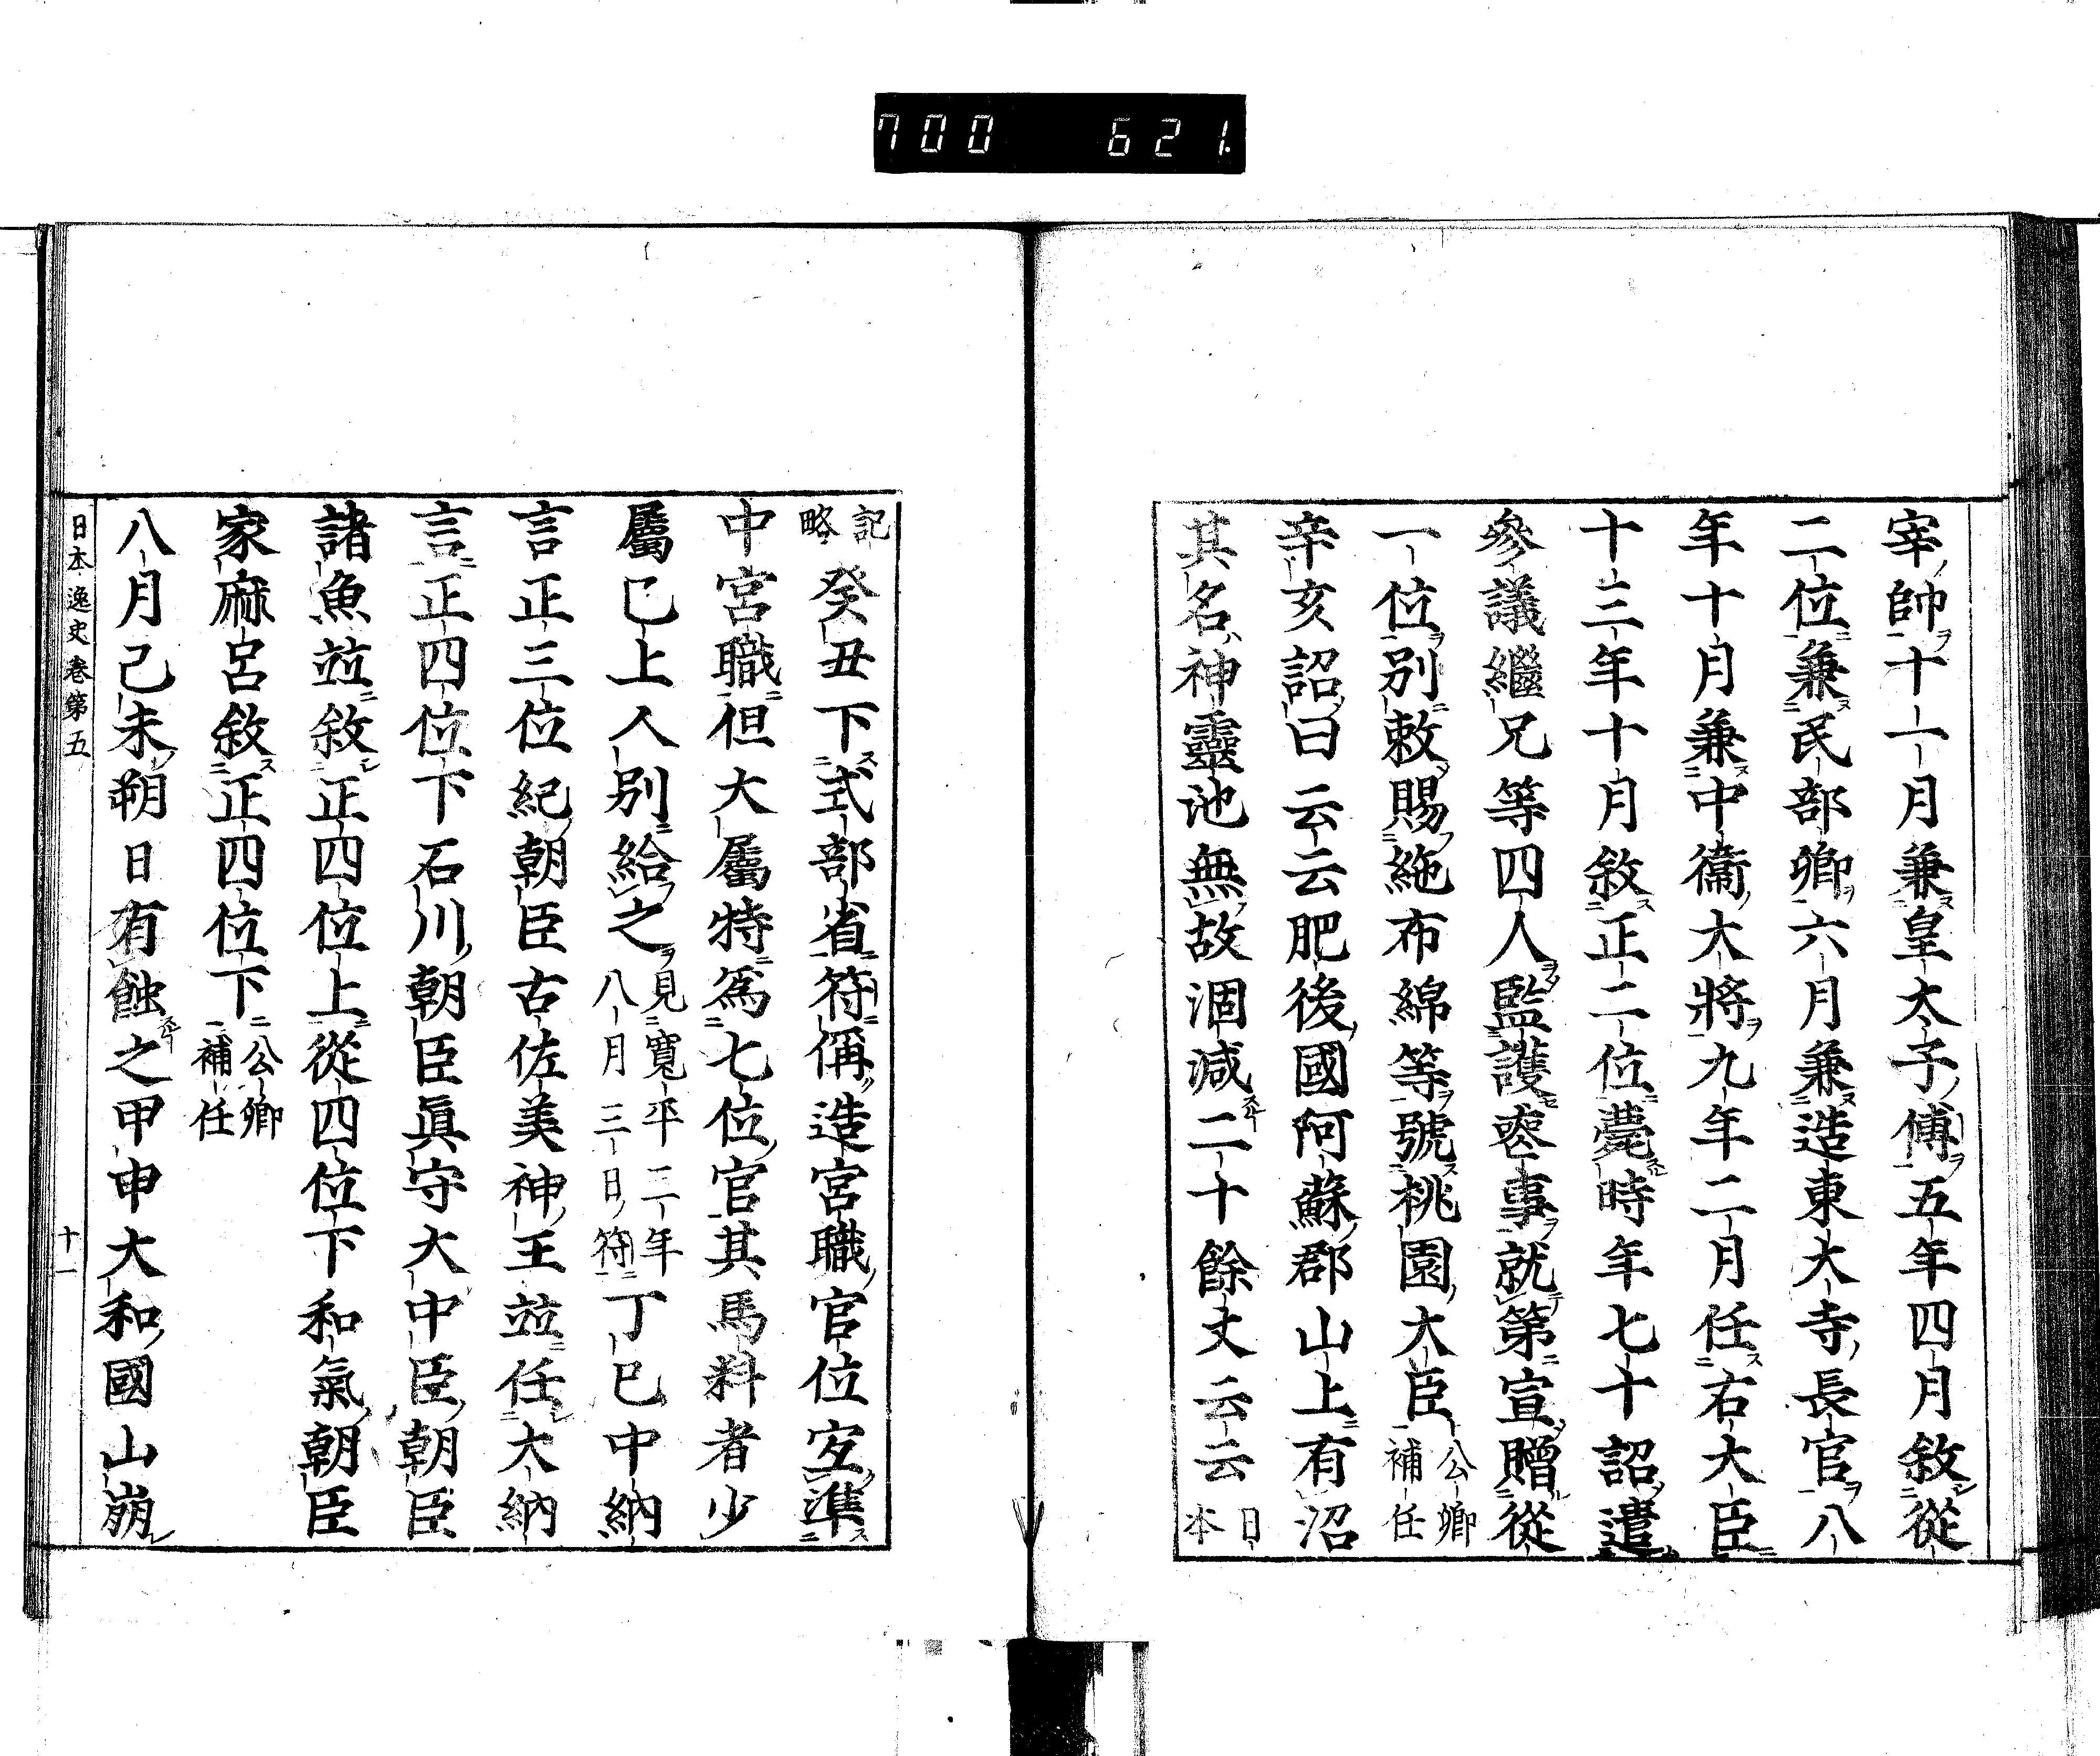 700 621
宰帥十一月兼皇太子傅五年四月敘從
二位兼民部卿六月兼造東大寺長官八
年十月兼中衞大將九年二月任右大臣
十三年十月敘正二位薨時年七十詔遣
參議繼兄等四人監護喪事就第宣贈從
一位別敕賜絁布綿等號桃園大臣公卿補任
辛亥詔曰云云肥後國阿蘇郡山上有沼
其名神靈池無故涸減二十餘丈云云日本
記略癸丑下式部省符偁造宮職官位宜準
中宮職但大屬特爲七位官其馬料者少
屬已上人別給之見寬平二年八月三日符丁巳中納
言正三位紀朝臣古佐美神王竝任大納
言正四位下石川朝臣眞守大中臣朝臣
諸魚竝敘正四位上從四位下和氣朝臣
家麻呂敘正四位下公卿補任
八月己未朔日有蝕之甲申大和國山崩
日本逸史卷第五 十一